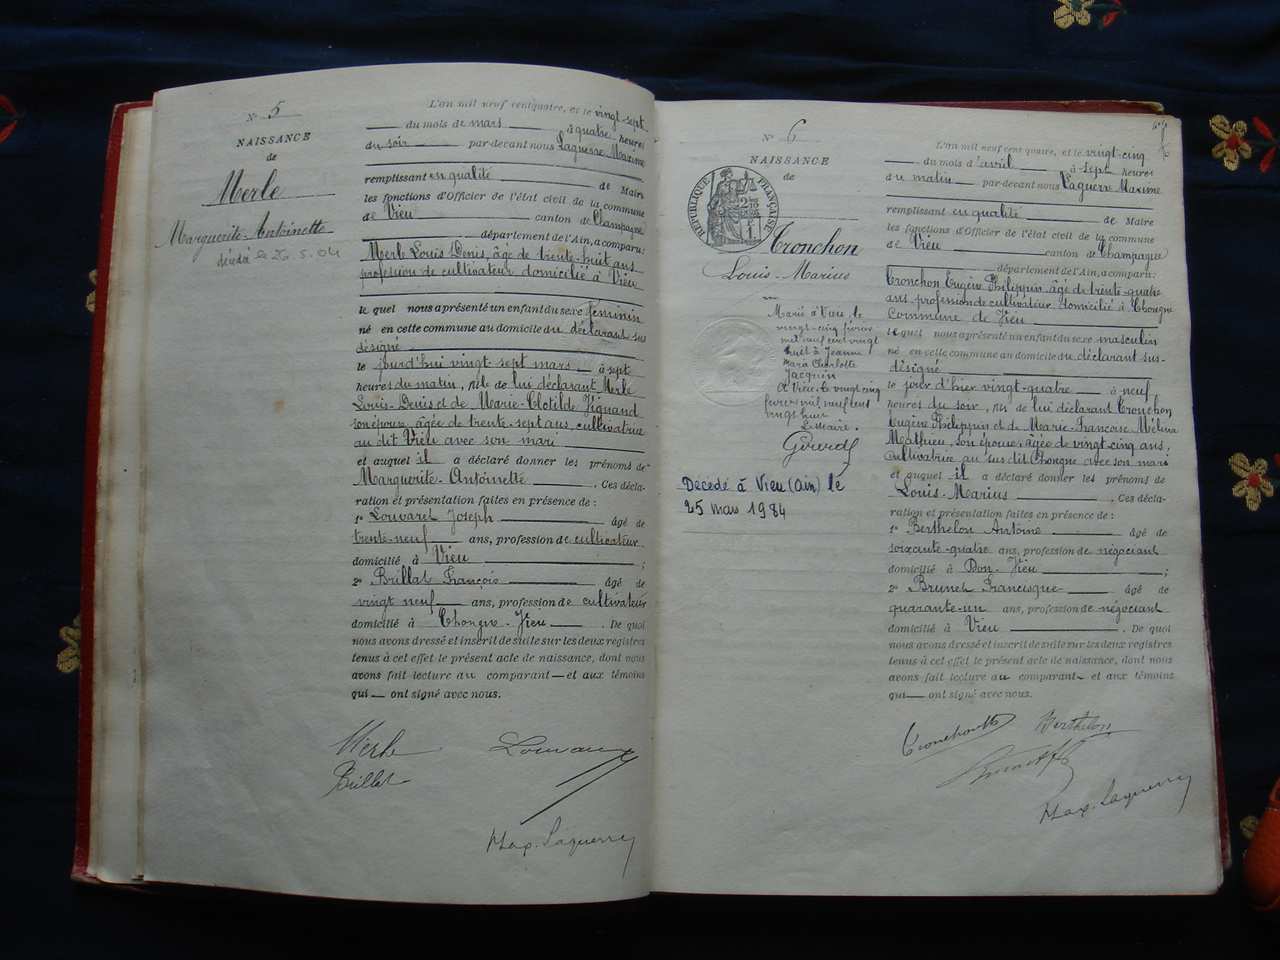 N° 5
NAISSANCE
de
Merle
Marguerite-Antoinette
décédé le 26.5.04
L'an mil neuf cent quatre, et le vingt-sept
du mois de mars à quatre heures
du soir par-devant nous Laguerre Maxime
remplissant en qualité de Maire
les fonctions d'Officier de l'état civil de la commune
de Vieu canton de Champagne
département de l'Ain, a comparu:
Merle Louis Denis, âgé de trente-huit ans
profession de cultivateur domicilié à Vieu
lequel nous a présenté un enfant du sexe féminin
né en cette commune au domicile du déclarant sus
désigné
le jourd'hui vingt sept mars à sept
heures du matin, née de lui déclarant Merle
Louis-Denis et de Marie-Clotilde
son épouse, âgée de trente-sept ans, cultivatrice
au dit Vieu avec son mari
et auquel il a déclaré donner les prénoms de
Marguerite-Antoinette Ces décla-
ration et présentation faites en présence de :
1° Louvaret Joseph âgé de
trente-neuf ans, profession de cultivateur
domicilié à Vieu ;
2° Brillat François âgé de
vingt neuf ans, profession de cultivateur
domicilié à Chongne-Vieu . De quoi
nous avons dressé et inscrit de suite sur les deux registres
tenus à cet effet le présent acte de naissance, dont nous
avons fait lecture au comparant et aux témoins
qui ont signé avec nous.
Merle
Brillat
Max. Laguerre
N° 6
NAISSANCE
de
RÉPUBLIQUE FRANÇAISE
Cronchon
Louis-Marius
Marié à Vieu, le
vingt-cinq février
mil neuf cent vingt
huit à Jeanne
Charlotte
Jacquin
A Vieu, le vingt cinq
février mil neuf cent
vingt huit
Le Maire.
Décédé à Vieu (Ain) le
25 mars 1984
L'an mil neuf cent quatre, et le vingt-cinq
du mois d'avril à sept heures
du matin par-devant nous Laguerre Maxime
remplissant en qualité de Maire
les fonctions d'Officier de l'état civil de la commune
de Vieu canton de Champagne
département de l'Ain, a comparu:
Cronchon Eugène Philippin âgé de trente-quatre
ans, profession de cultivateur domicilié à Chongne
commune de Vieu
lequel nous a présenté un enfant du sexe masculin
né en cette commune au domicile du déclarant sus-
désigné
le jour d'hier vingt-quatre à neuf
heures du soir, né de lui déclarant Cronchon
Eugène Philippin et de Marie-Françoise Mélina
Mathieu, son épouse, âgée de vingt-cinq ans,
cultivatrice au sus dit Chongne avec son mari
et auquel il a déclaré donner les prénoms de
Louis-Marius Ces décla-
ration et présentation faites en présence de :
1° Berthelon Antoine âgé de
soixante-quatre ans, profession de négociant
domicilié à Don-Vieu ;
2° Brunet Francisque âgé de
quarante-un ans, profession de négociant
domicilié à Vieu . De quoi
nous avons dressé et inscrit de suite sur les deux registres
tenus à cet effet le présent acte de naissance, dont nous
avons fait lecture au comparant et aux témoins
qui ont signé avec nous.
Berthelon
Max. Laguerre